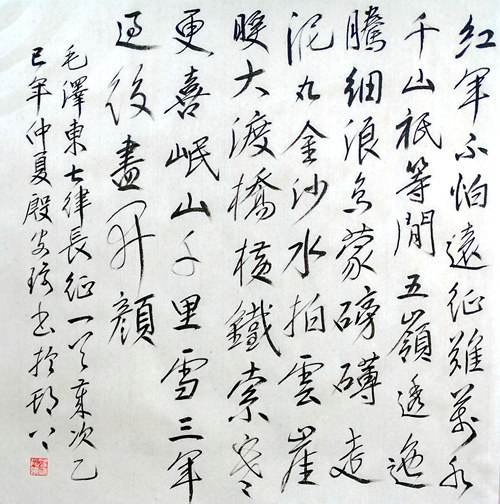 紅軍不怕遠征難萬水
千山祇等閒五嶺逶迤
騰細浪烏蒙磅礴走
泥丸金沙水拍雲崖
暖大渡橋橫鐵索寒
更喜岷山千里雪三軍
過後盡開顏
毛澤東七律長征一首歲次乙
巳年仲夏殷書於